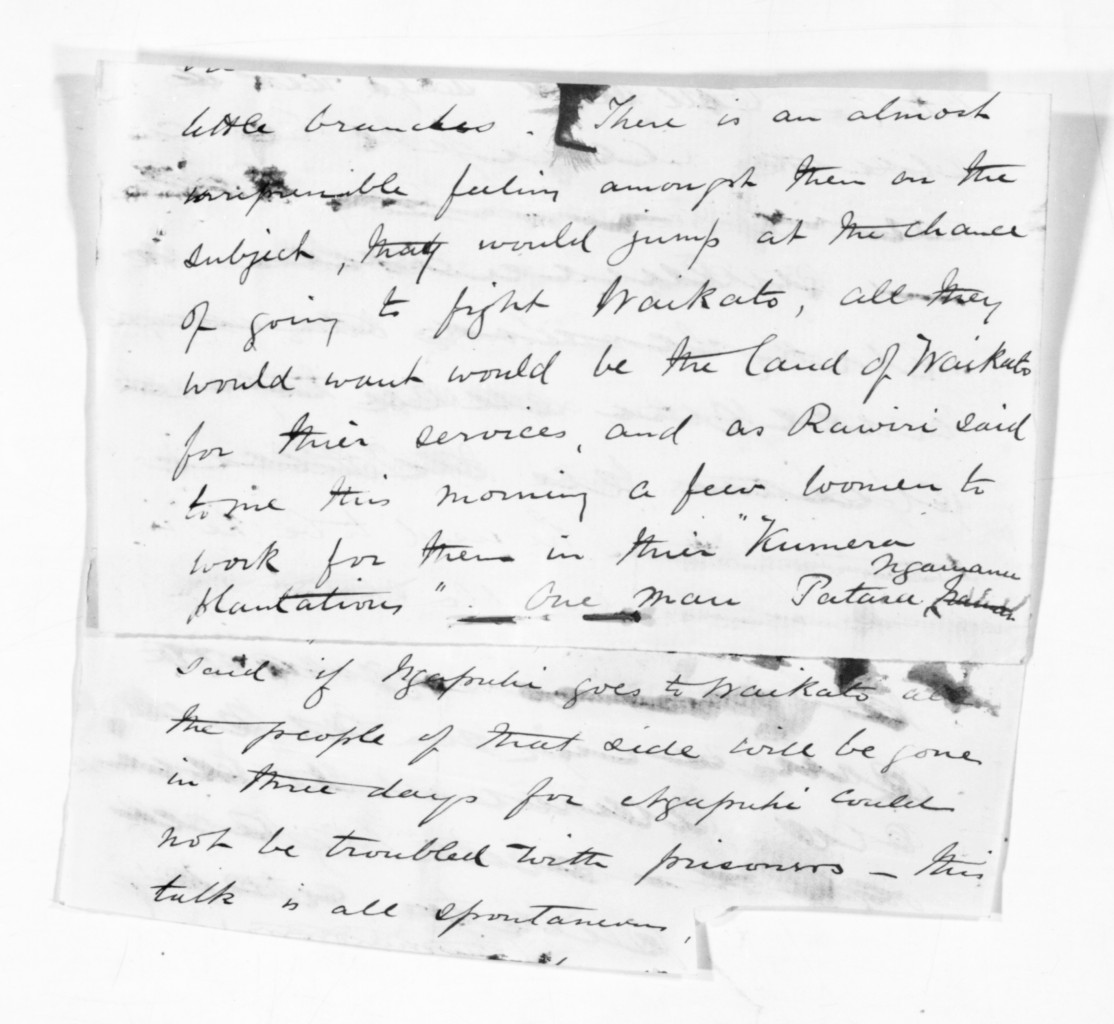 little branches. [There is an almost
irrepressible feeling amongst them on the
subject, they would jump at the chance
of going to fight Waikato, all they
would want would be the land of Waikato
for thier services, and as Rawiri said
to me this morning a few women to
work for them in thier "Kumera
plantations". One man Patara Ngamanu
said if Ngapuhi goes to Waikato all
the people of that side will be gone
in three days for Ngapuhi could
not be troubled with prisoners – this
talk is all spontaneous,